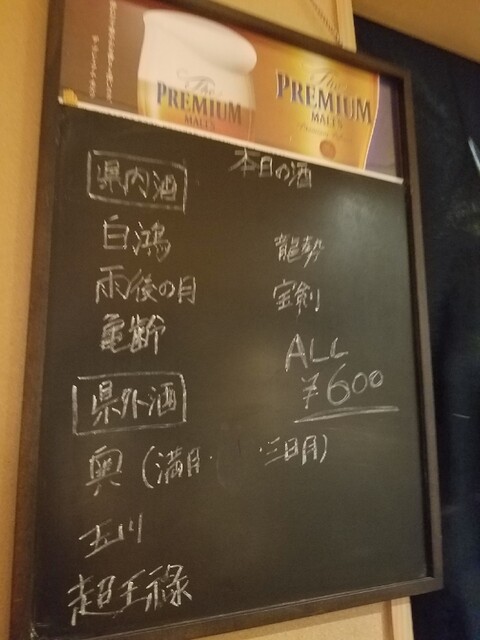 The
PREMIUM
MALT'S
The
PREMIUM
MALT'S
本日の酒
県内酒
白鴻
龍勢
雨後の月
宝剣
亀齢
ALL
¥600
県外酒
奥(満月・ 三日月)
五川
超王祿